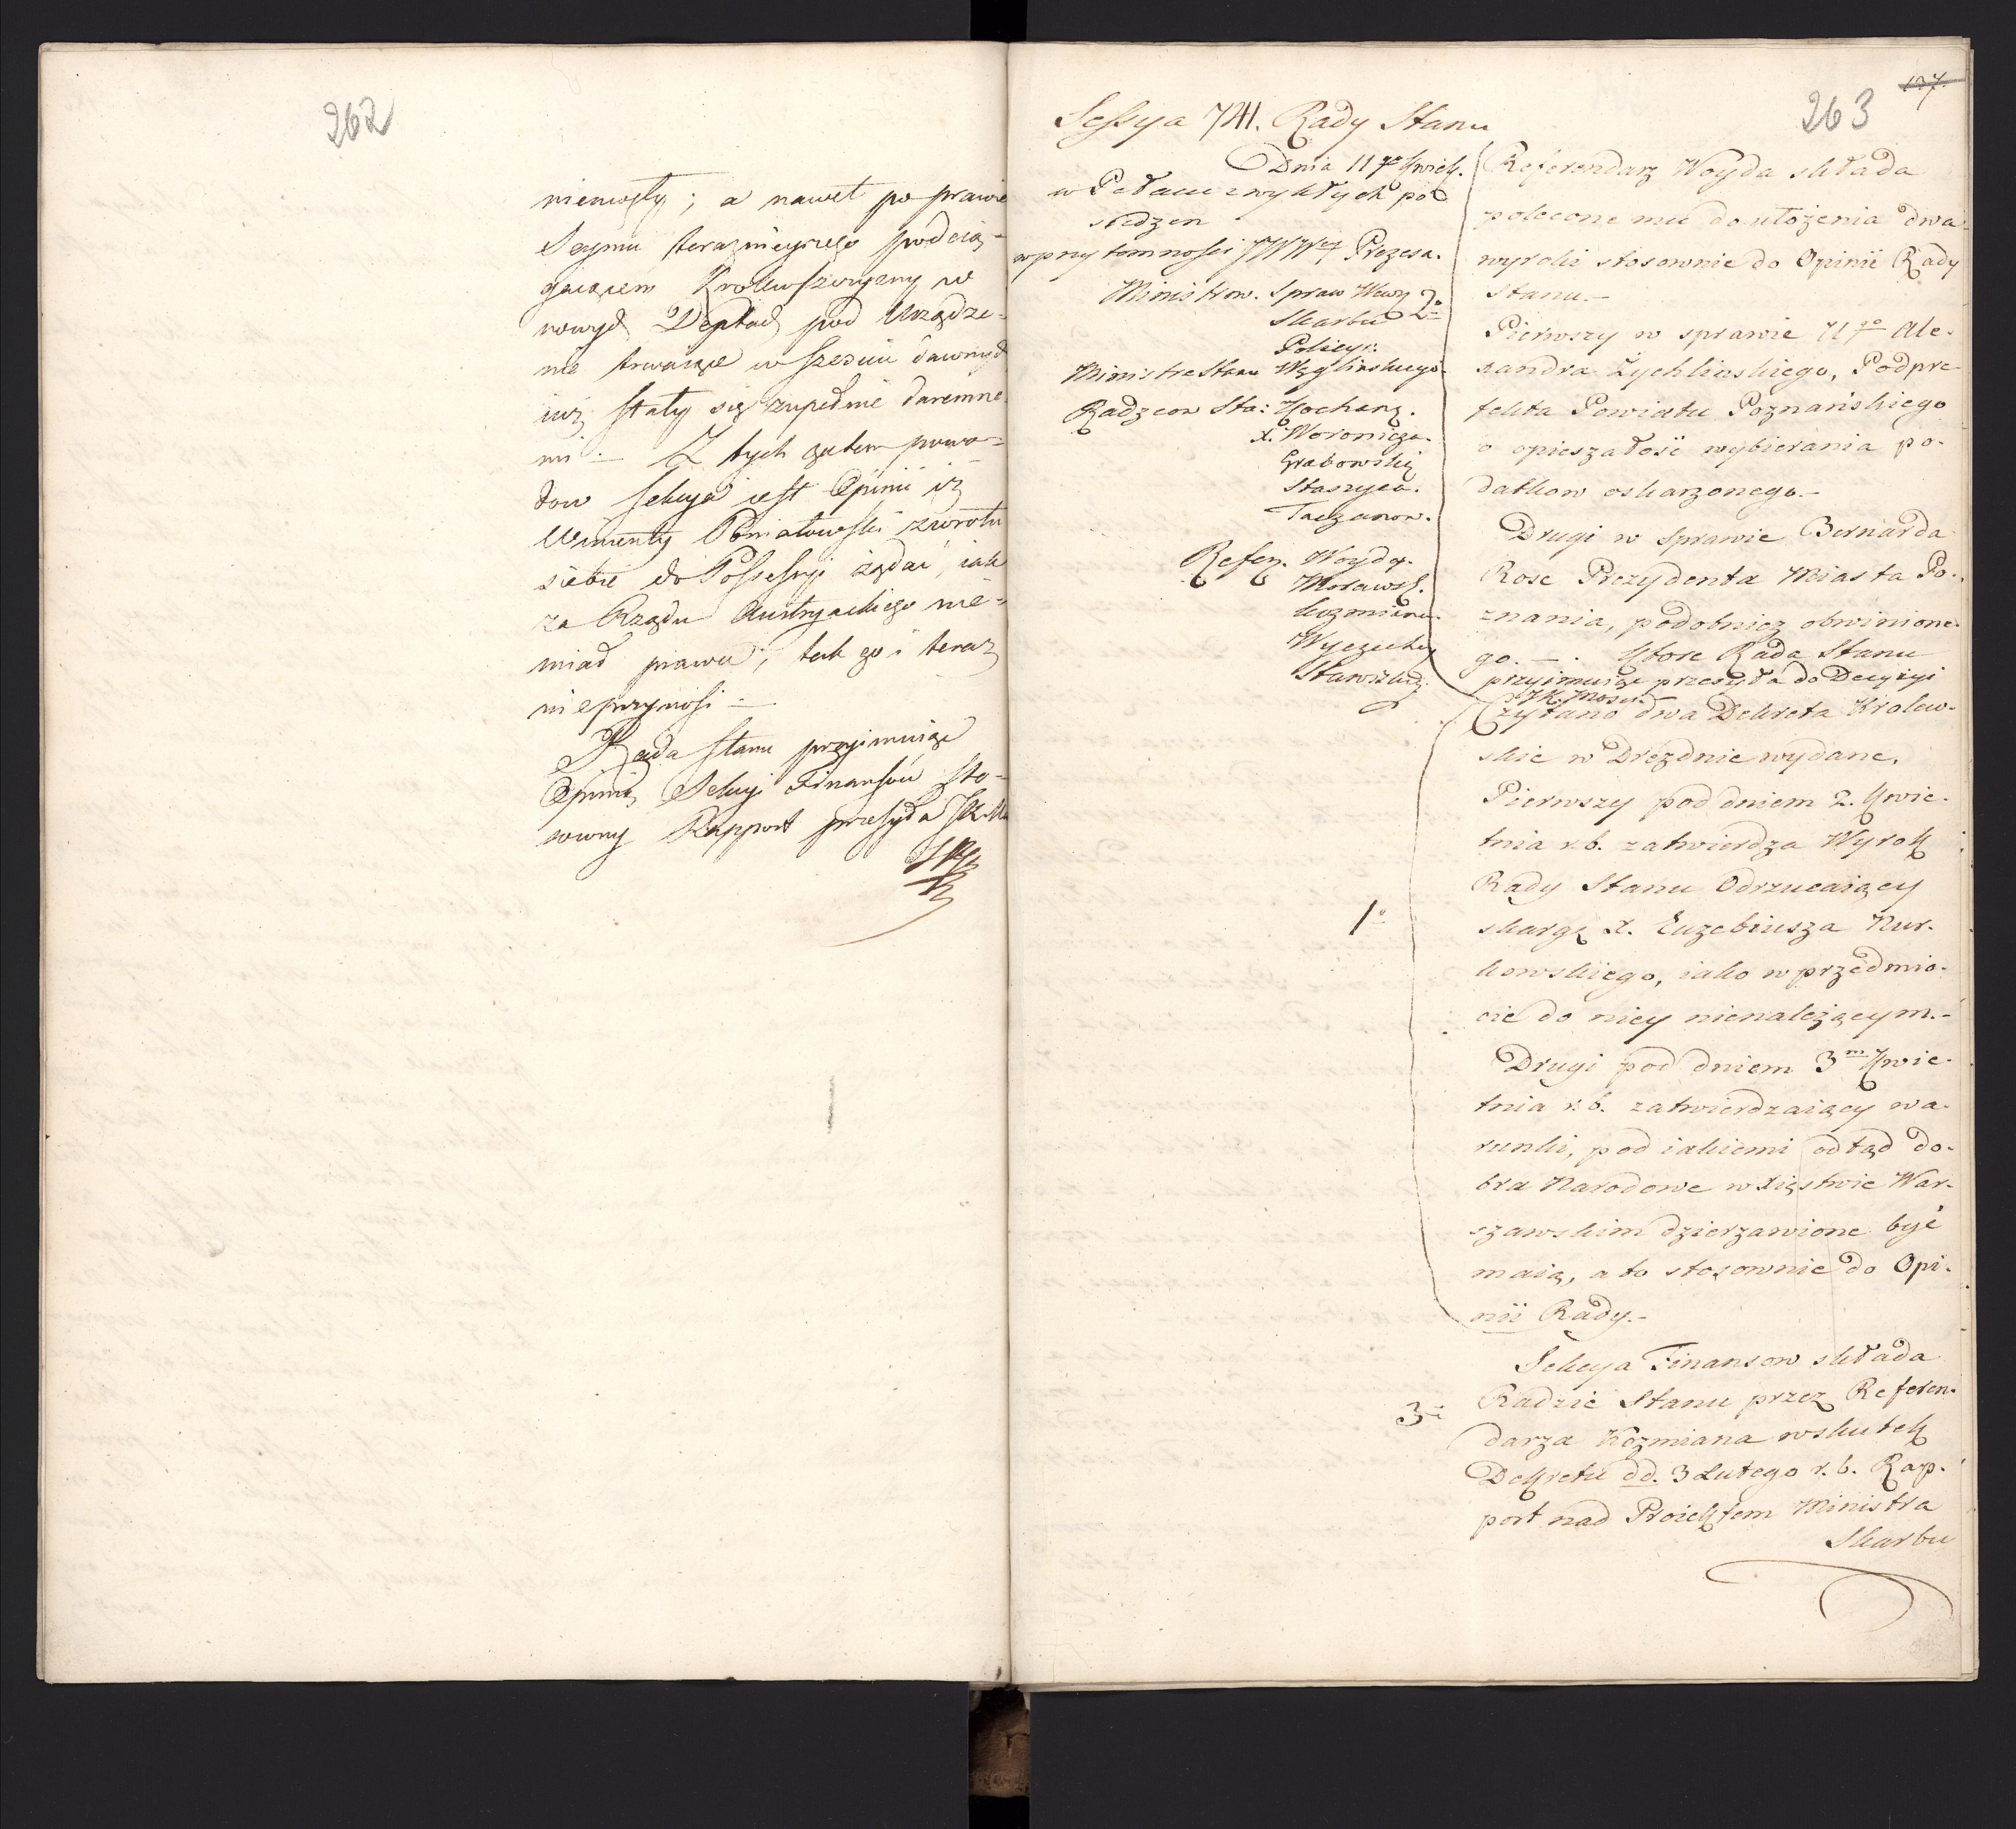 262
niemogły; a nawet po prawie
Seymu terazniejszego podcią-
gaiącem Krolewszczyzny w
nowych Deptach pod Urządze-
nie trwaiące w szesciu dawnych
iuż stały się zupełnie daremne-
mi. – Z tych zatem powo-
dow Sekcya iest Opinii iż
Wincenty Poniatowski zwrotu
siebie do Possessyi żądać, iak
za Rządu Austryackiego nie-
miał prawa, tak go i teraz
nieprzynosi –
Rada Stanu przyimuiąc
Opinią Sekcyi Finansów sto-
sowny Rapport przesyła JKM
263
137.
Sessya 741. Rady Stanu
Dnia 11go Kwiet.
w Pałacu zwykłych po
siedzen
w przytomności JWW Prezesa.
Ministrow. Spraw Wewn
Skarbu
Policyi:
Ministra Stanu Węglinskiego.
Radzcow Sta: Kochan.
X. Woronicza.
Grabowskie
Staszyca.
Taczanow.
Refer. Woydy.
Morawsk.
Kozmiana.
Wyczechow
Stawiski
2o
Referendarz Woyda składa
polecone mu do ułożenia dwa
wyroki stosownie do Opinii Rady
Stanu. –
Pierwszy w sprawie Ugo Ale-
xandra Żychlinskiego, Podpre-
fekta Powiatu Poznańskiego
o opieszałość wybierania po-
datkow oskarzonego. –
Drugi w Sprawie Bernarda
Rose Prezydenta Miasta Po-
znania, podobnież obwinione-
go. – . Ktore Rada Stanu
przyimuiąc przesyła do Decyzyi
JK. Mosci.
Czytano dwa Dekreta Krolew-
skie w Dreznie wydane.
Pierwszy pod dniem 2. Kwie-
tnia r.b. zatwierdza Wyrok
Rady Stanu Odrzucaiący
1o
skargę X. Euzebiusza Kur-
kowskiego, iako w przedmio-
cie do niey nienależącym. –
Drugi pod dniem 3m Kwie-
tnia r.b. zatwierdzaiący wa-
runki, pod iakiemi odtąd do-
bra Narodowe w Xięstwie War-
szawskim dzierzawione być
maią, a to stosownie do Opi-
nii Rady. –
Sekcya Finansow składa
3o
Radzie Stanu przez Referen-
darza Kozmiana wskutek
Dekretu dd. 3 Lutego r.b. Rap-
port nad Proiektem Ministra
Skarbu